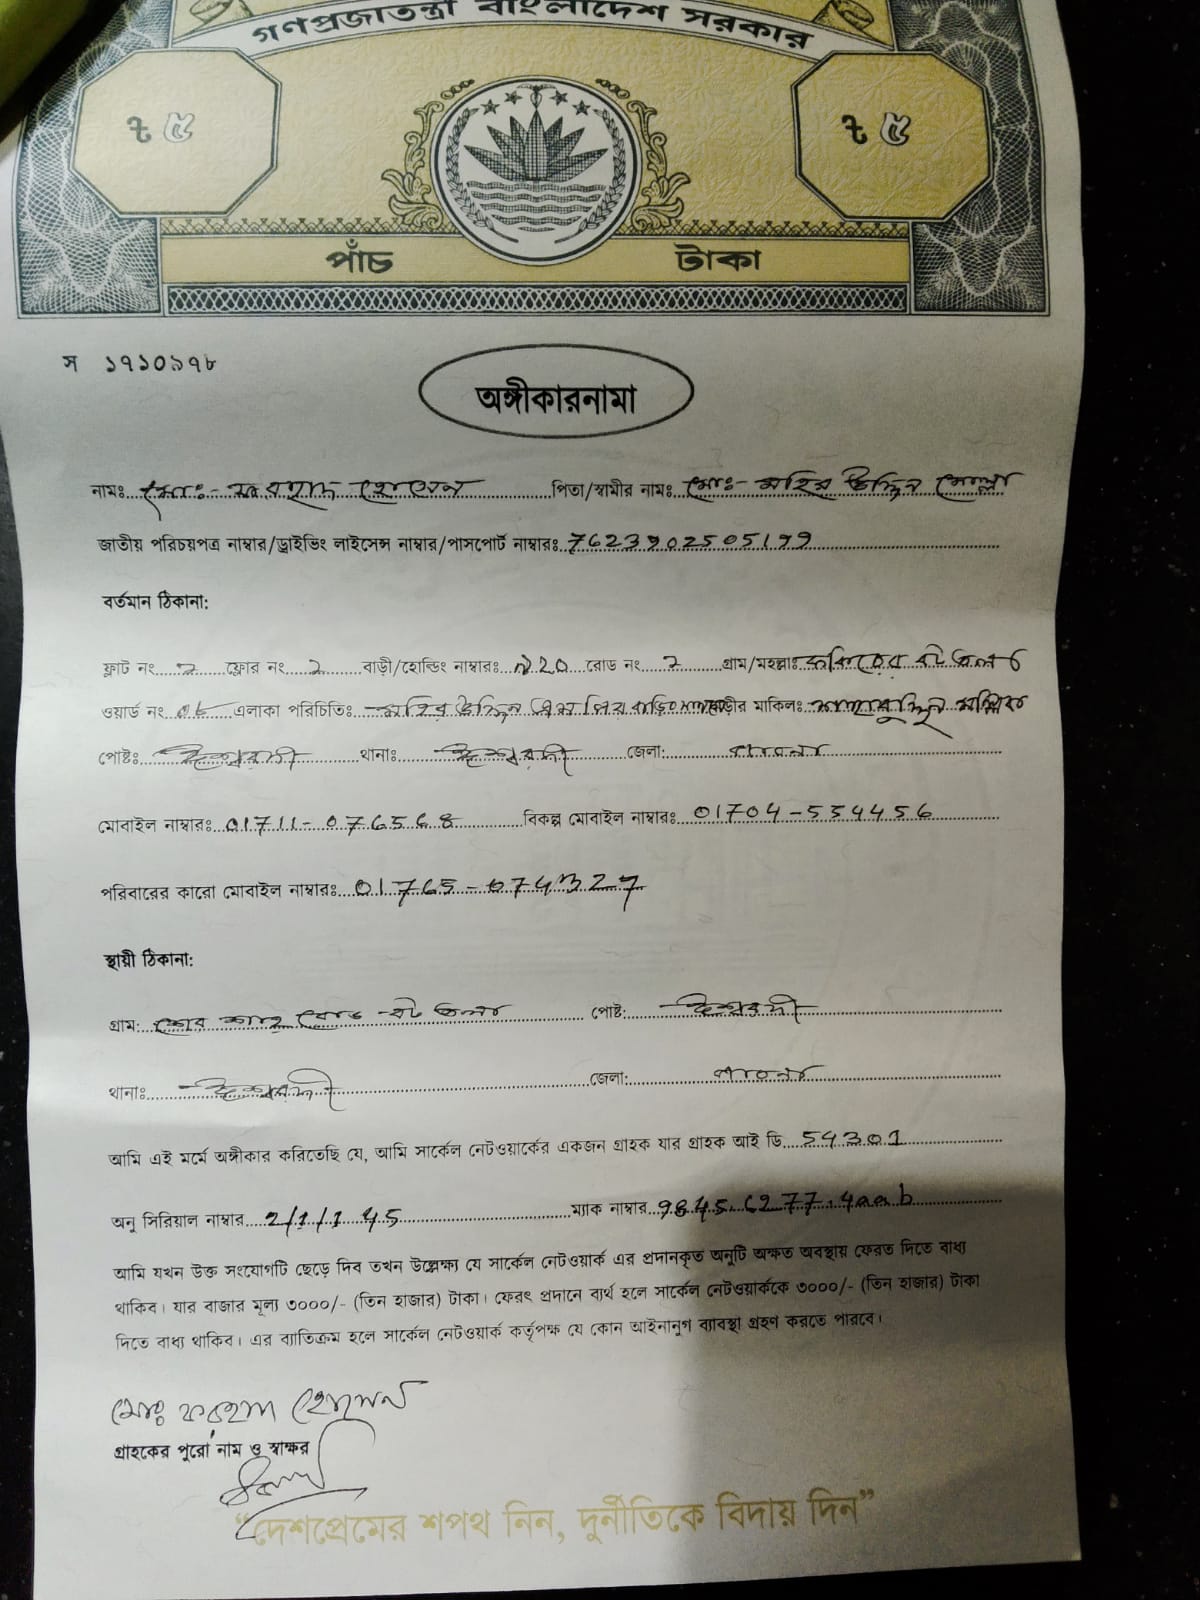 গণপ্রজাতন্ত্রী বাংলাদেশ সরকার
৳ ৫ ৳ ৫
পাঁচ টাকা
স ১৭১০৯৭৮
অঙ্গীকারনামা
নামঃ মোঃ- ফরহাদ হোসেন পিতা/স্বামীর নামঃ মোঃ- মহির উদ্দিন মোল্লা
জাতীয় পরিচয়পত্র নাম্বার/ড্রাইভিং লাইসেন্স নাম্বার/পাসপোর্ট নাম্বারঃ 7623902505199
বর্তমান ঠিকানা:
ফ্লাট নং ফ্লোর নং 2 বাড়ী/হোল্ডিং নাম্বারঃ রোড নং গ্রাম/মহল্লাঃ বট তলা
ওয়ার্ড নং 08 এলাকা পরিচিতিঃ মহির উদ্দিন বাড়ীর মাকিলঃ
পোষ্টঃ ঈশ্বরদী থানাঃ ঈশ্বরদী জেলা: পাবনা
মোবাইল নাম্বারঃ 01711-076568 বিকল্প মোবাইল নাম্বারঃ 01704-554456
পরিবারের কারো মোবাইল নাম্বারঃ 01765-074327
স্থায়ী ঠিকানা:
গ্রাম: শের শাহ রোড বট তলা পোষ্ট: ঈশ্বরদী
থানাঃ ঈশ্বরদী জেলা: পাবনা
আমি এই মর্মে অঙ্গীকার করিতেছি যে, আমি সার্কেল নেটওয়ার্কের একজন গ্রাহক যার গ্রাহক আই ডি 54301
অনু সিরিয়াল নাম্বার 2/1/1 45 ম্যাক নাম্বার 9845.6277.4aab
আমি যখন উক্ত সংযোগটি ছেড়ে দিব তখন উল্লেক্ষ্য যে সার্কেল নেটওয়ার্ক এর প্রদানকৃত অনুটি অক্ষত অবস্থায় ফেরত দিতে বাধ্য
থাকিব। যার বাজার মূল্য ৩০০০/- (তিন হাজার) টাকা। ফেরৎ প্রদানে ব্যর্থ হলে সার্কেল নেটওয়ার্ককে ৩০০০/- (তিন হাজার) টাকা
দিতে বাধ্য থাকিব। এর ব্যাতিক্রম হলে সার্কেল নেটওয়ার্ক কর্তৃপক্ষ যে কোন আইনানুগ ব্যাবস্থা গ্রহণ করতে পারবে।
মোঃ ফরহাদ হোসেন
গ্রাহকের পুরো নাম ও স্বাক্ষর
“দেশপ্রেমের শপথ নিন, দুর্নীতিকে বিদায় দিন”